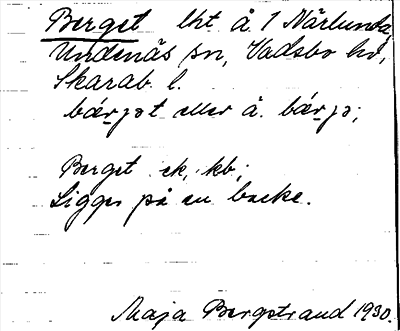 Berget lht å 1 Närlunda,
Undenäs sn, Vadsbo hd,
Skarab. l.
bærjət eller å. bærjə;
Berget ek. kb;
Ligger på en backe.
Maja Bergstrand 1930.